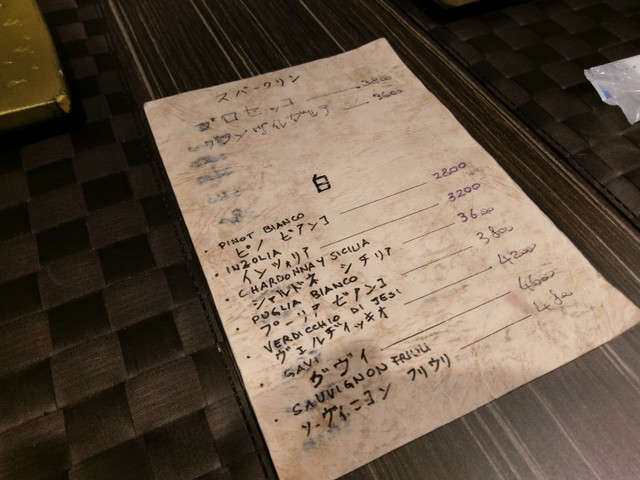 スパークリン
プロセッコ 3800
フランヴィルヴェルデ 3600
白
・PINOT BIANCO 2800
ピノ ビアンコ
・INZOLIA 3200
インツォリア
・CHARDONNAY SICILIA 3600
シャルドネ シチリア
・PUGLIA BIANCO 3800
プーリア ビアンコ
・VERDICCHIO DI JESI 4200
ヴェルディッキオ
・GAVI 4600
ガヴィ
・SAUVIGNON FRIULI 4800
ソーヴィニヨン フリウリ